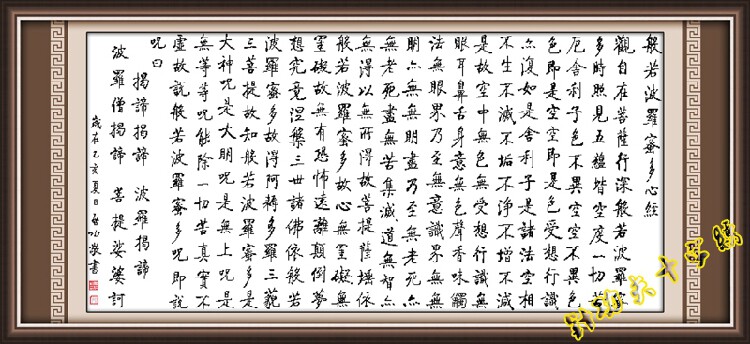 般若波羅蜜多心經
觀自在菩薩行深般若波羅蜜
多時照見五蘊皆空度一切苦
厄舍利子色不異空空不異色
色即是空空即是色受想行識
亦復如是舍利子是諸法空相
不生不滅不垢不淨不增不減
是故空中無色無受想行識無
眼耳鼻舌身意無色聲香味觸
法無眼界乃至無意識界無無
明亦無無明盡乃至無老死亦
無老死盡無苦集滅道無智亦
無得以無所得故菩提薩埵依
般若波羅蜜多故心無罣礙無
罣礙故無有恐怖遠離顛倒夢
想究竟涅槃三世諸佛依般若
波羅蜜多故得阿耨多羅三藐
三菩提故知般若波羅蜜多是
大神呪是大明呪是無上呪是
無等等呪能除一切苦真實不
虛故說般若波羅蜜多呪即說
呪曰
揭諦揭諦 波羅揭諦
波羅僧揭諦 菩提娑婆訶
歲在乙亥夏日 敬書